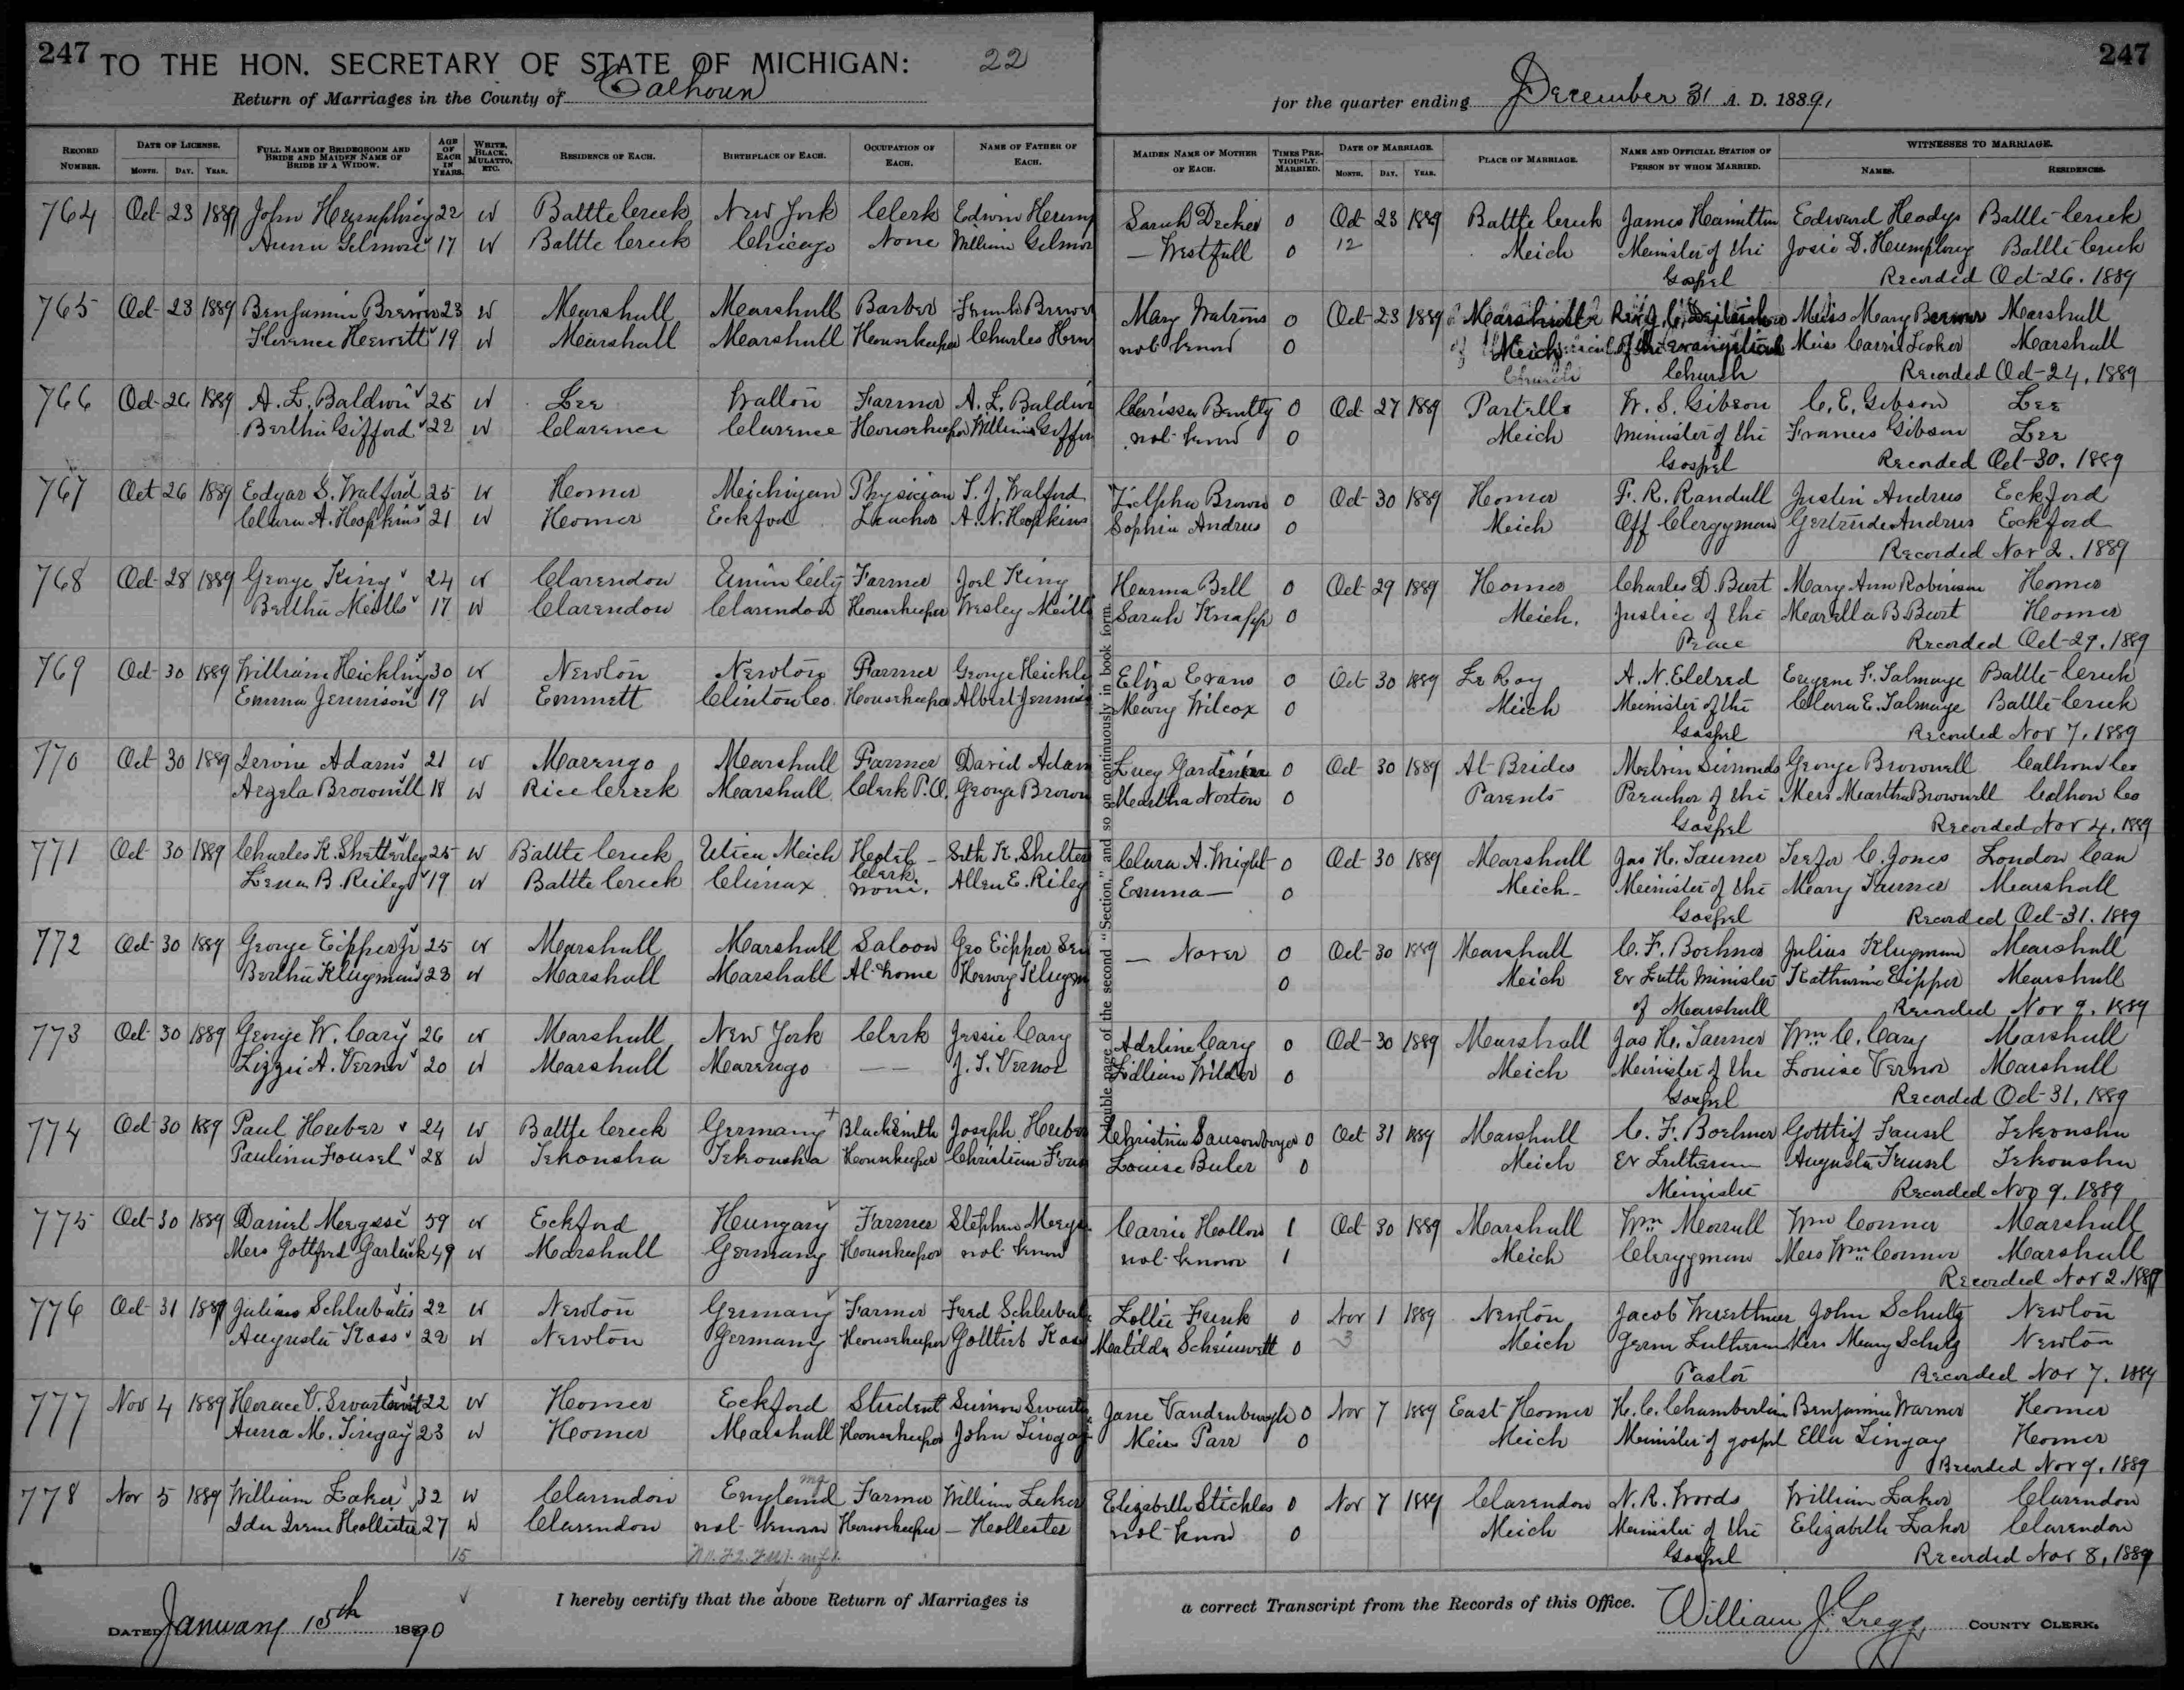 247
TO THE HON. SECRETARY OF STATE OF MICHIGAN: 22
Return of Marriages in the County of Calhoun
for the quarter ending December 31 A. D. 1889,
247
RECORD NUMBER. DATE OF LICENSE. MONTH. DAY. YEAR. FULL NAME OF BRIDEGROOM AND BRIDE AND MAIDEN NAME OF BRIDE IF A WIDOW. AGE OF EACH IN YEARS. WHITE, BLACK, MULATTO, ETC. RESIDENCE OF EACH. BIRTHPLACE OF EACH. OCCUPATION OF EACH. NAME OF FATHER OF EACH. MAIDEN NAME OF MOTHER OF EACH. TIMES PREVIOUSLY MARRIED. DATE OF MARRIAGE. MONTH. DAY. YEAR. PLACE OF MARRIAGE. NAME AND OFFICIAL STATION OF PERSON BY WHOM MARRIED. WITNESSES TO MARRIAGE. NAMES. RESIDENCES.
764 Oct 23 1889 John Humphrey 22 W Battle Creek New York Clerk Edwin Hump Sarah Decker 0 Oct 23 1889 Battle Creek James Hamilton Edward Headys Battle Creek
Anna Gilmore 17 W Battle Creek Chicago None William Gilmor — Westfall 0 12 Mich Minister of the Josie D. Humphrey Battle Creek
Gospel Recorded Oct 26. 1889
765 Oct 23 1889 Benjamin Brewer 23 W Marshall Marshall Barber Frank Brewer Mary Watrous 0 Oct 23 1889 Marshall Miss Mary Marshall
Florence Hewett 19 W Marshall Marshall Housekeeper Charles Hew not know 0 Mich of the Evangelical Miss Carrie Marshall
Church Church Recorded Oct 24, 1889
766 Oct 26 1889 A. L. Baldwin 25 W Lee Walton Farmer A. L. Baldwi Clarissa Bently 0 Oct 27 1889 Partello W. S. Gibson C. E. Gibson Lee
Bertha Gifford 22 W Clarence Clarence Housekeeper William Giffor not know 0 Mich Minister of the Frances Gibson Lee
Gospel Recorded Oct 30. 1889
767 Oct 26 1889 Edgar S. Walford 25 W Homer Michigan Physician S. J. Walford Zilpha Brown 0 Oct 30 1889 Homer F. R. Randall Justin Andrus Eckford
Clara A. Hopkins 21 W Homer Eckford Teacher A. N. Hopkins Sophia Andrus 0 Mich Off Clergyman Gertrude Andrus Eckford
Recorded Nov 2. 1889
768 Oct 28 1889 George King 24 W Clarendon Union City Farmer Joel King Bell 0 Oct 29 1889 Homer Charles D. Burt Mary Ann Robinson Homer
Bertha Mills 17 W Clarendon Clarendon Housekeeper Wesley Mills Sarah Knapp 0 Mich. Justice of the Marella B Burt Homer
Peace Recorded Oct 29. 1889
769 Oct 30 1889 William Hickling 30 W Newton Newton Farmer George Hickli Eliza Evans 0 Oct 30 1889 Le Roy A. N. Eldred Eugene F. Talmage Battle Creek
Emma Jennison 19 W Emmett Clinton Co. Housekeeper Albert Jennis Mary Wilcox 0 Mich Minister of the Clara E. Talmage Battle Creek
Gospel Recorded Nov 7. 1889
770 Oct 30 1889 Adams 21 W Marengo Marshall Farmer David Adam Lucy 0 Oct 30 1889 At Brides Melvin Simonds George Brownell Calhoun Co
Brownell 18 W Rice Creek Marshall Clerk P.O. George Brown Martha Norton 0 Parents Preacher of the Mrs Martha Brownell Calhoun Co
Gospel Recorded Nov 4. 1889
771 Oct 30 1889 Charles K. Shetterley 25 W Battle Creek Utica Mich Hotel Seth K. Shetter Clara A. Wright 0 Oct 30 1889 Marshall Jas H. Tanner C. Jones London Can
Lena B. Riley 19 W Battle Creek Climax Clerk none. Allen E. Riley Emma — 0 Mich Minister of the Mary Tanner Marshall
Gospel Recorded Oct 31. 1889
772 Oct 30 1889 George Eipper Jr 25 W Marshall Marshall Saloon Geo Eipper Sen — Naver 0 Oct 30 1889 Marshall C. F. Boehmer Julius Klugman Marshall
Bertha Klugman 23 W Marshall Marshall At home Henry Klugm 0 Mich Ev Luth Minister Katharine Eipper Marshall
of Marshall Recorded Nov 9. 1889
773 Oct 30 1889 George W. Cary 26 W Marshall New York Clerk Jessie Cary Adeline Cary 0 Oct 30 1889 Marshall Jas H. Tanner Wm C. Cary Marshall
Lizzie A. Vernor 20 W Marshall Marengo — — J. S. Vernor Lillian Wilder 0 Mich Minister of the Louise Vernor Marshall
Gospel Recorded Oct 31, 1889
774 Oct 30 1889 Paul Huber 24 W Battle Creek Germany Blacksmith Joseph Huber Christina 0 Oct 31 1889 Marshall C. F. Boehmer Gottlieb Fausel Tekonsha
Paulina Fousel 28 W Tekonsha Tekonsha Housekeeper Christian Fous Louise Buler 0 Mich Ev Lutheran Augusta Fausel Tekonsha
Minister Recorded Nov 9. 1889
775 Oct 30 1889 Daniel Mergsse 59 W Eckford Hungary Farmer Stephen Mergs Carrie Hollow 1 Oct 30 1889 Marshall Wm Morrall Wm Conner Marshall
Mrs Gottford Garluck 49 W Marshall Germany Housekeeper not know not know 1 Mich Clergyman Mrs Wm Conner Marshall
Recorded Nov 2. 1889
776 Oct 31 1889 Julius Schlubatis 22 W Newton Germany Farmer Fred Schlubat Lollie Funk 0 Nov 1 1889 Newton Jacob Wuerthner John Schultz Newton
Augusta Kass 22 W Newton Germany Housekeeper Gottlieb Kass Matilda Scheinwett 0 3 Mich Germ Lutheran Mrs Mary Schulz Newton
Pastor Recorded Nov 7. 1889
777 Nov 4 1889 Horace V. Swartwout 22 W Homer Eckford Student Simon Swartw Jane Vandenburgh 0 Nov 7 1889 East Homer H. C. Chamberlin Benjamin Warner Homer
Anna M. Tingay 23 W Homer Marshall Housekeeper John Tingay Miss Parr 0 Mich Minister of gospel Ella Tingay Homer
Recorded Nov 9. 1889
778 Nov 5 1889 William Laker 32 W Clarendon England Farmer William Laker Elizabeth Stickles 0 Nov 7 1889 Clarendon N. R. Woods William Laker Clarendon
Ida Irene Hollister 27 W Clarendon not known Housekeeper — Hollester not know 0 Mich Minister of the Elizabeth Laker Clarendon
15 Gospel Recorded Nov 8, 1889
double page of the second "Section," and so on continuously in book form.
I hereby certify that the above Return of Marriages is a correct Transcript from the Records of this Office.
DATED January 15th 1890 William J. Gregg COUNTY CLERK.